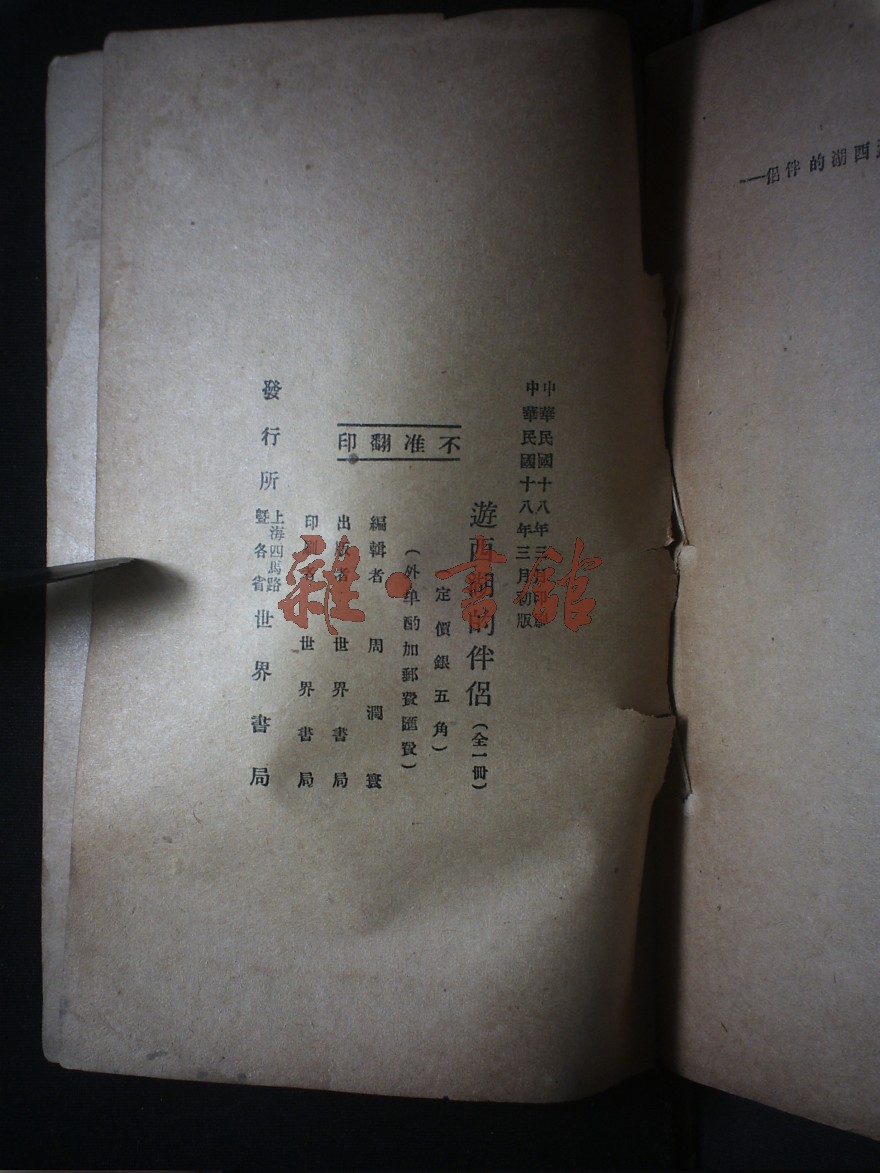 中華民國十八年三月印刷
中華民國十八年三月初版
遊西湖的伴侶(全一冊)
(定價銀五角)
(外埠酌加郵費匯費)
不准翻印
編輯者 周潤寰
出版者 世界書局
印刷者 世界書局
發行所 上海四馬路暨各省 世界書局
西湖的伴侶——
雜·書館